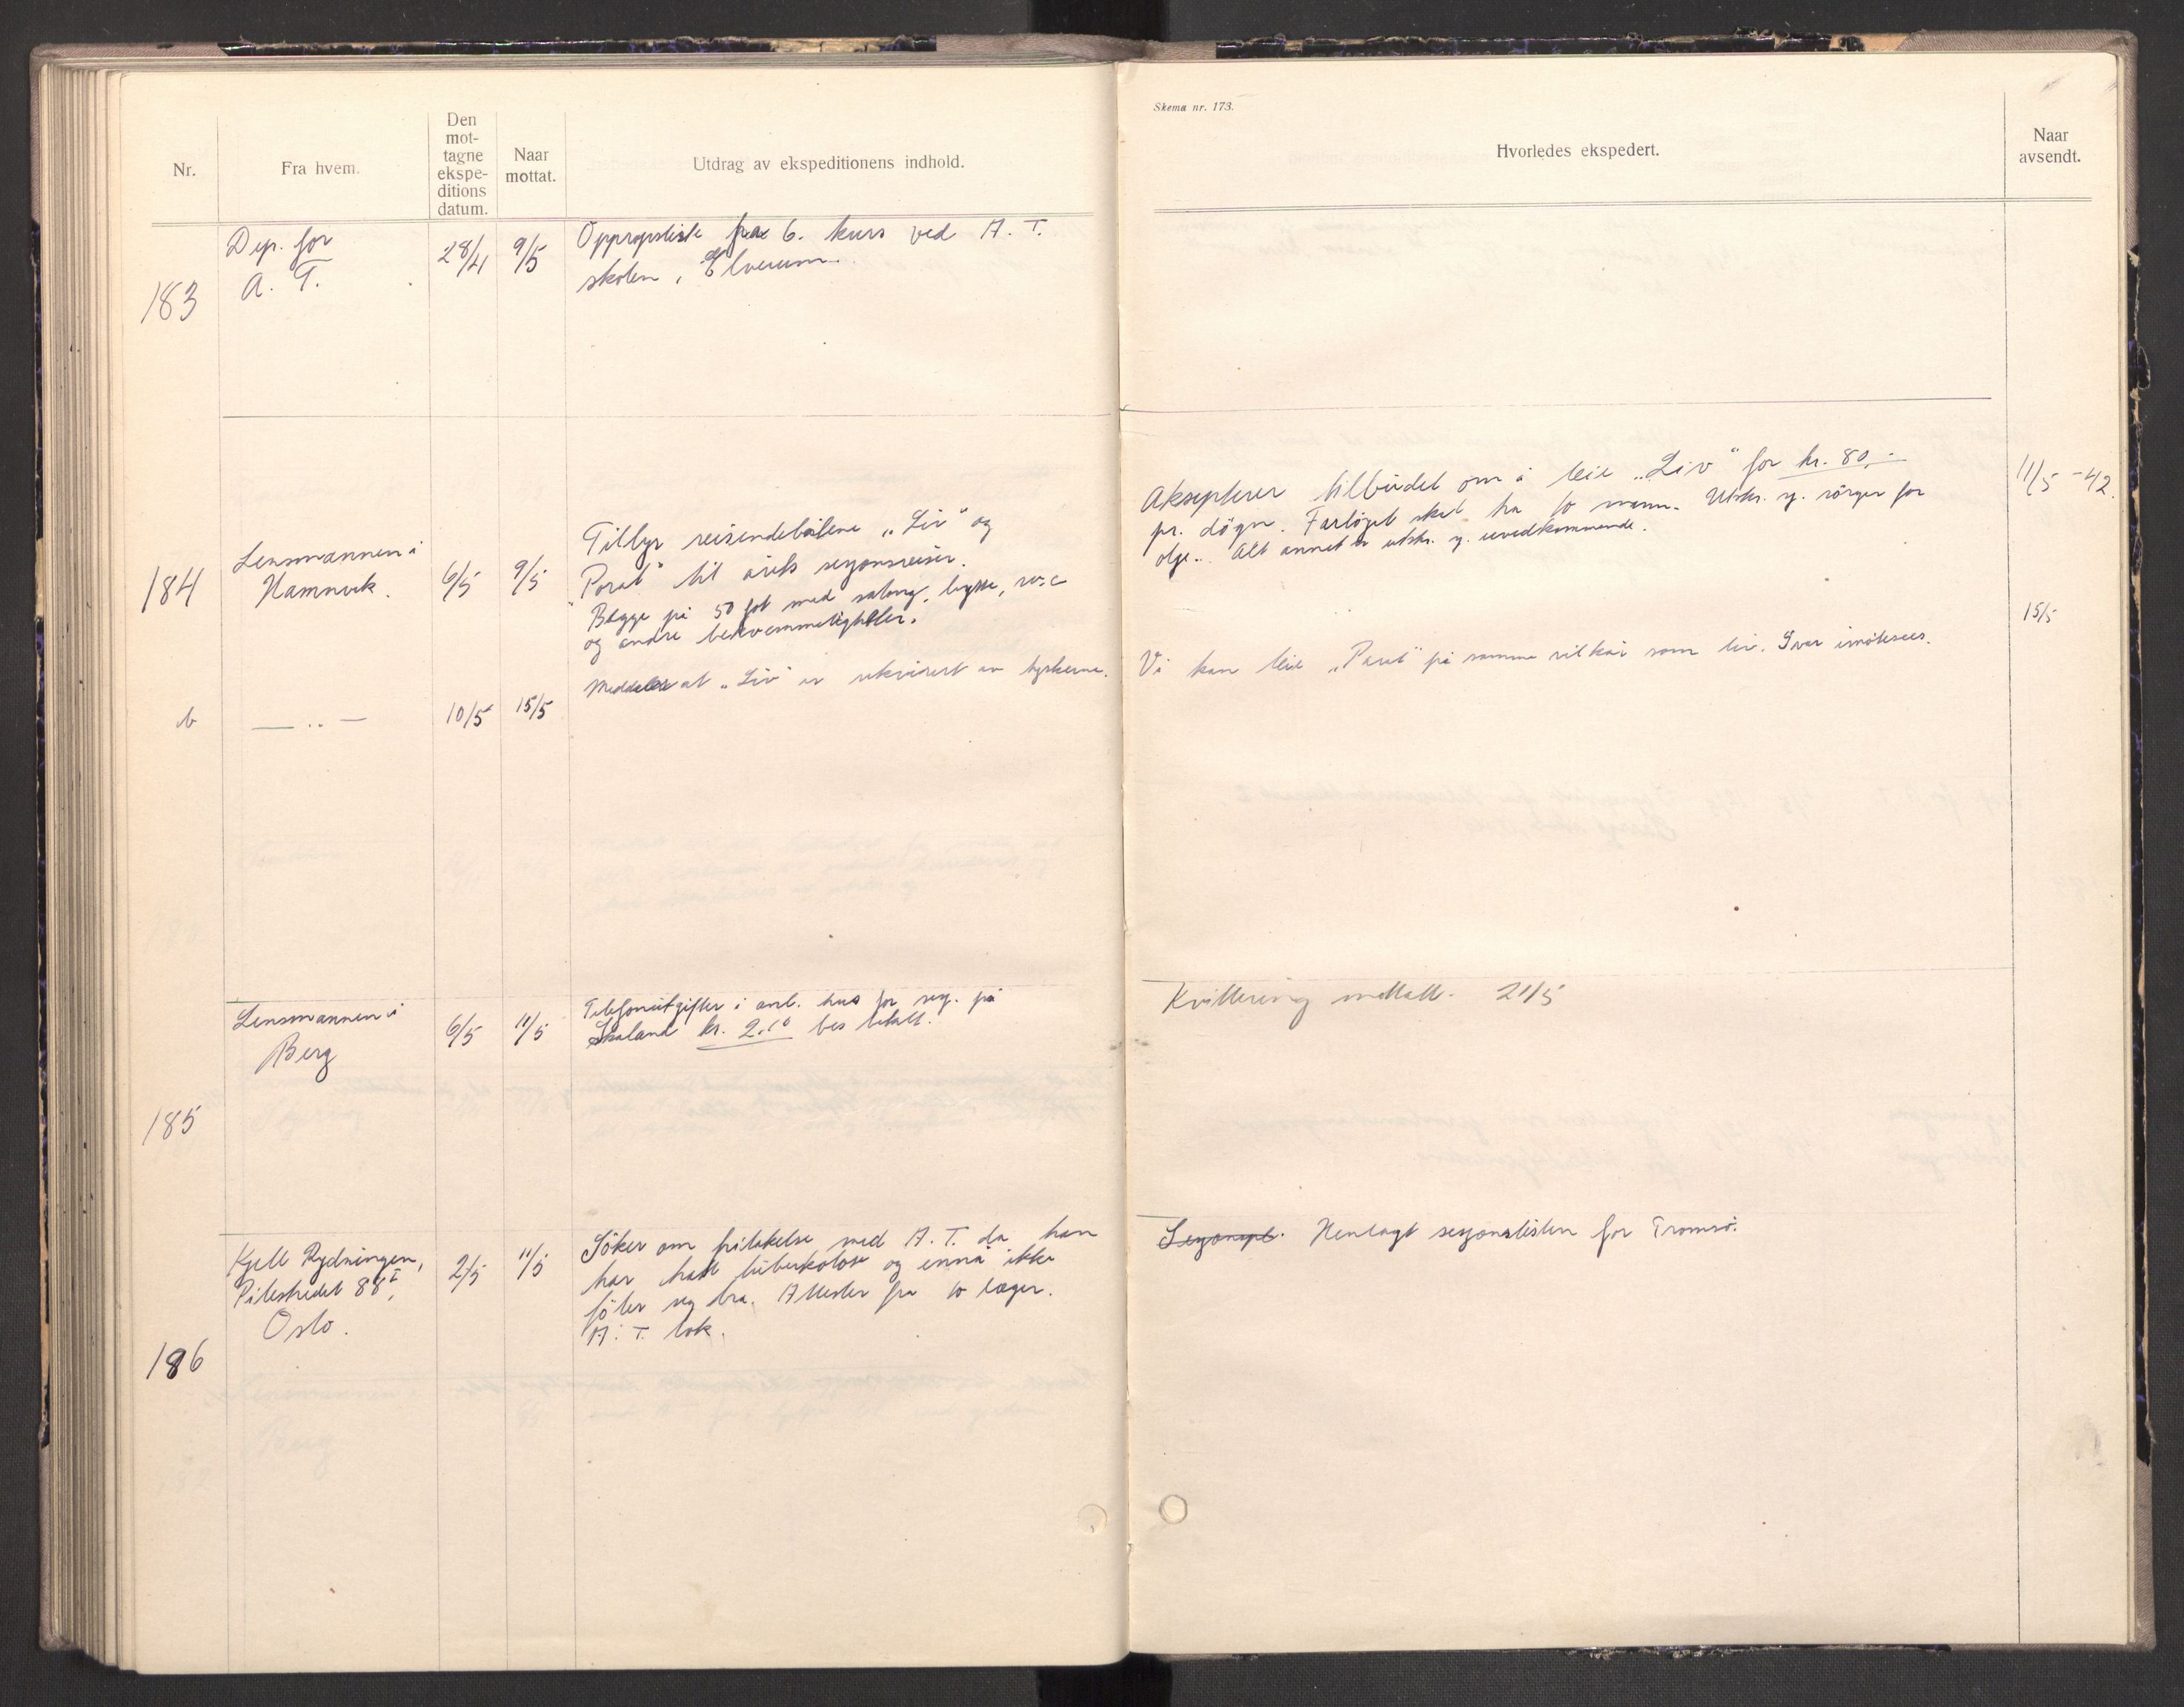 Skema nr. 173.
Nr.
Fra hvem.
Den
mot-
tagne
ekspe-
ditions
datum.
Naar
mottat.
Utdrag av ekspeditionens indhold.
Hvorledes ekspedert.
Naar
avsendt.
183
Dep. for
A. T.
28/4
9/5
Oppropsliste fra 6. kurs ved A. T.
skolen, Elverum.
184
Lensmannen i
Hamnvik.
6/5
9/5
Tilbyr reisendebåtene „Liv" og
"Porat" til årets sesjonsreiser.
Begge på 50 fot med salong, bysse, w.c
og andre bekvemmeligheter.
Aksepterer tilbudet om å leie „Liv" for kr. 80,-
pr. døgn. Fartøyet skal ha to mann. Utskr. sj. sørger for
olje. Alt annet er utskr. sj. uvedkommende.
11/5 -42.
b
— .. —
10/5
15/5
Meddeler at „Liv" er rekvirert av tyskerne.
Vi kan leie „Parat" på samme vilkår som liv. Svar imøtesees.
15/5
185
Lensmannen i
Berg
6/5
11/5
Telefonutgifter i anl. hus for sesj. på
Skaland kr. 2.10 bes betalt.
Kvittering mottatt. 21/5
186
Kjell Rydningen,
Pilestredet 88 I,
Oslo.
2/5
11/5
Söker om fritakelse med A. T. da han
har hatt tuberkolose og ennå ikke
föler seg bra. Attester fra to læger.
A. T. bok.
Henlagt sesjonslisten for Tromsö.